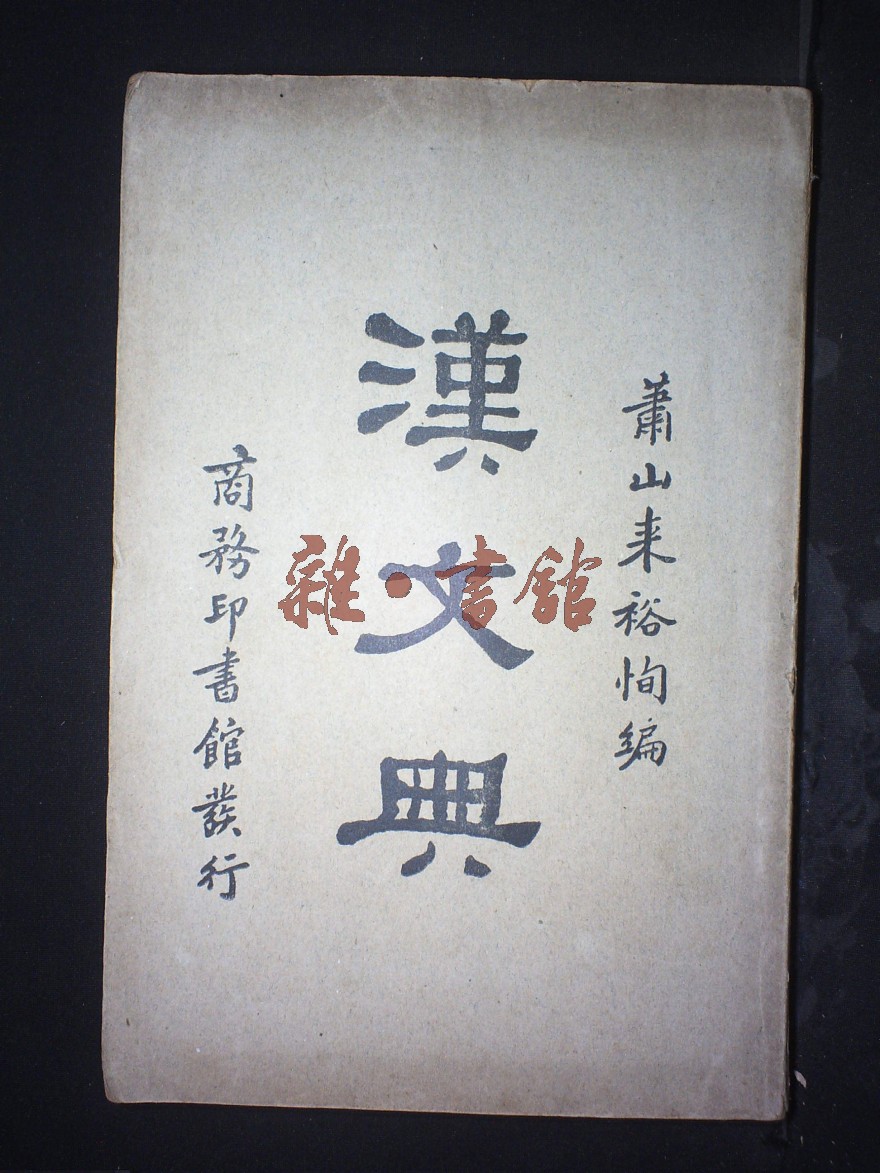 蕭山来裕恂編
漢文典
商務印書館發行
雜·書館